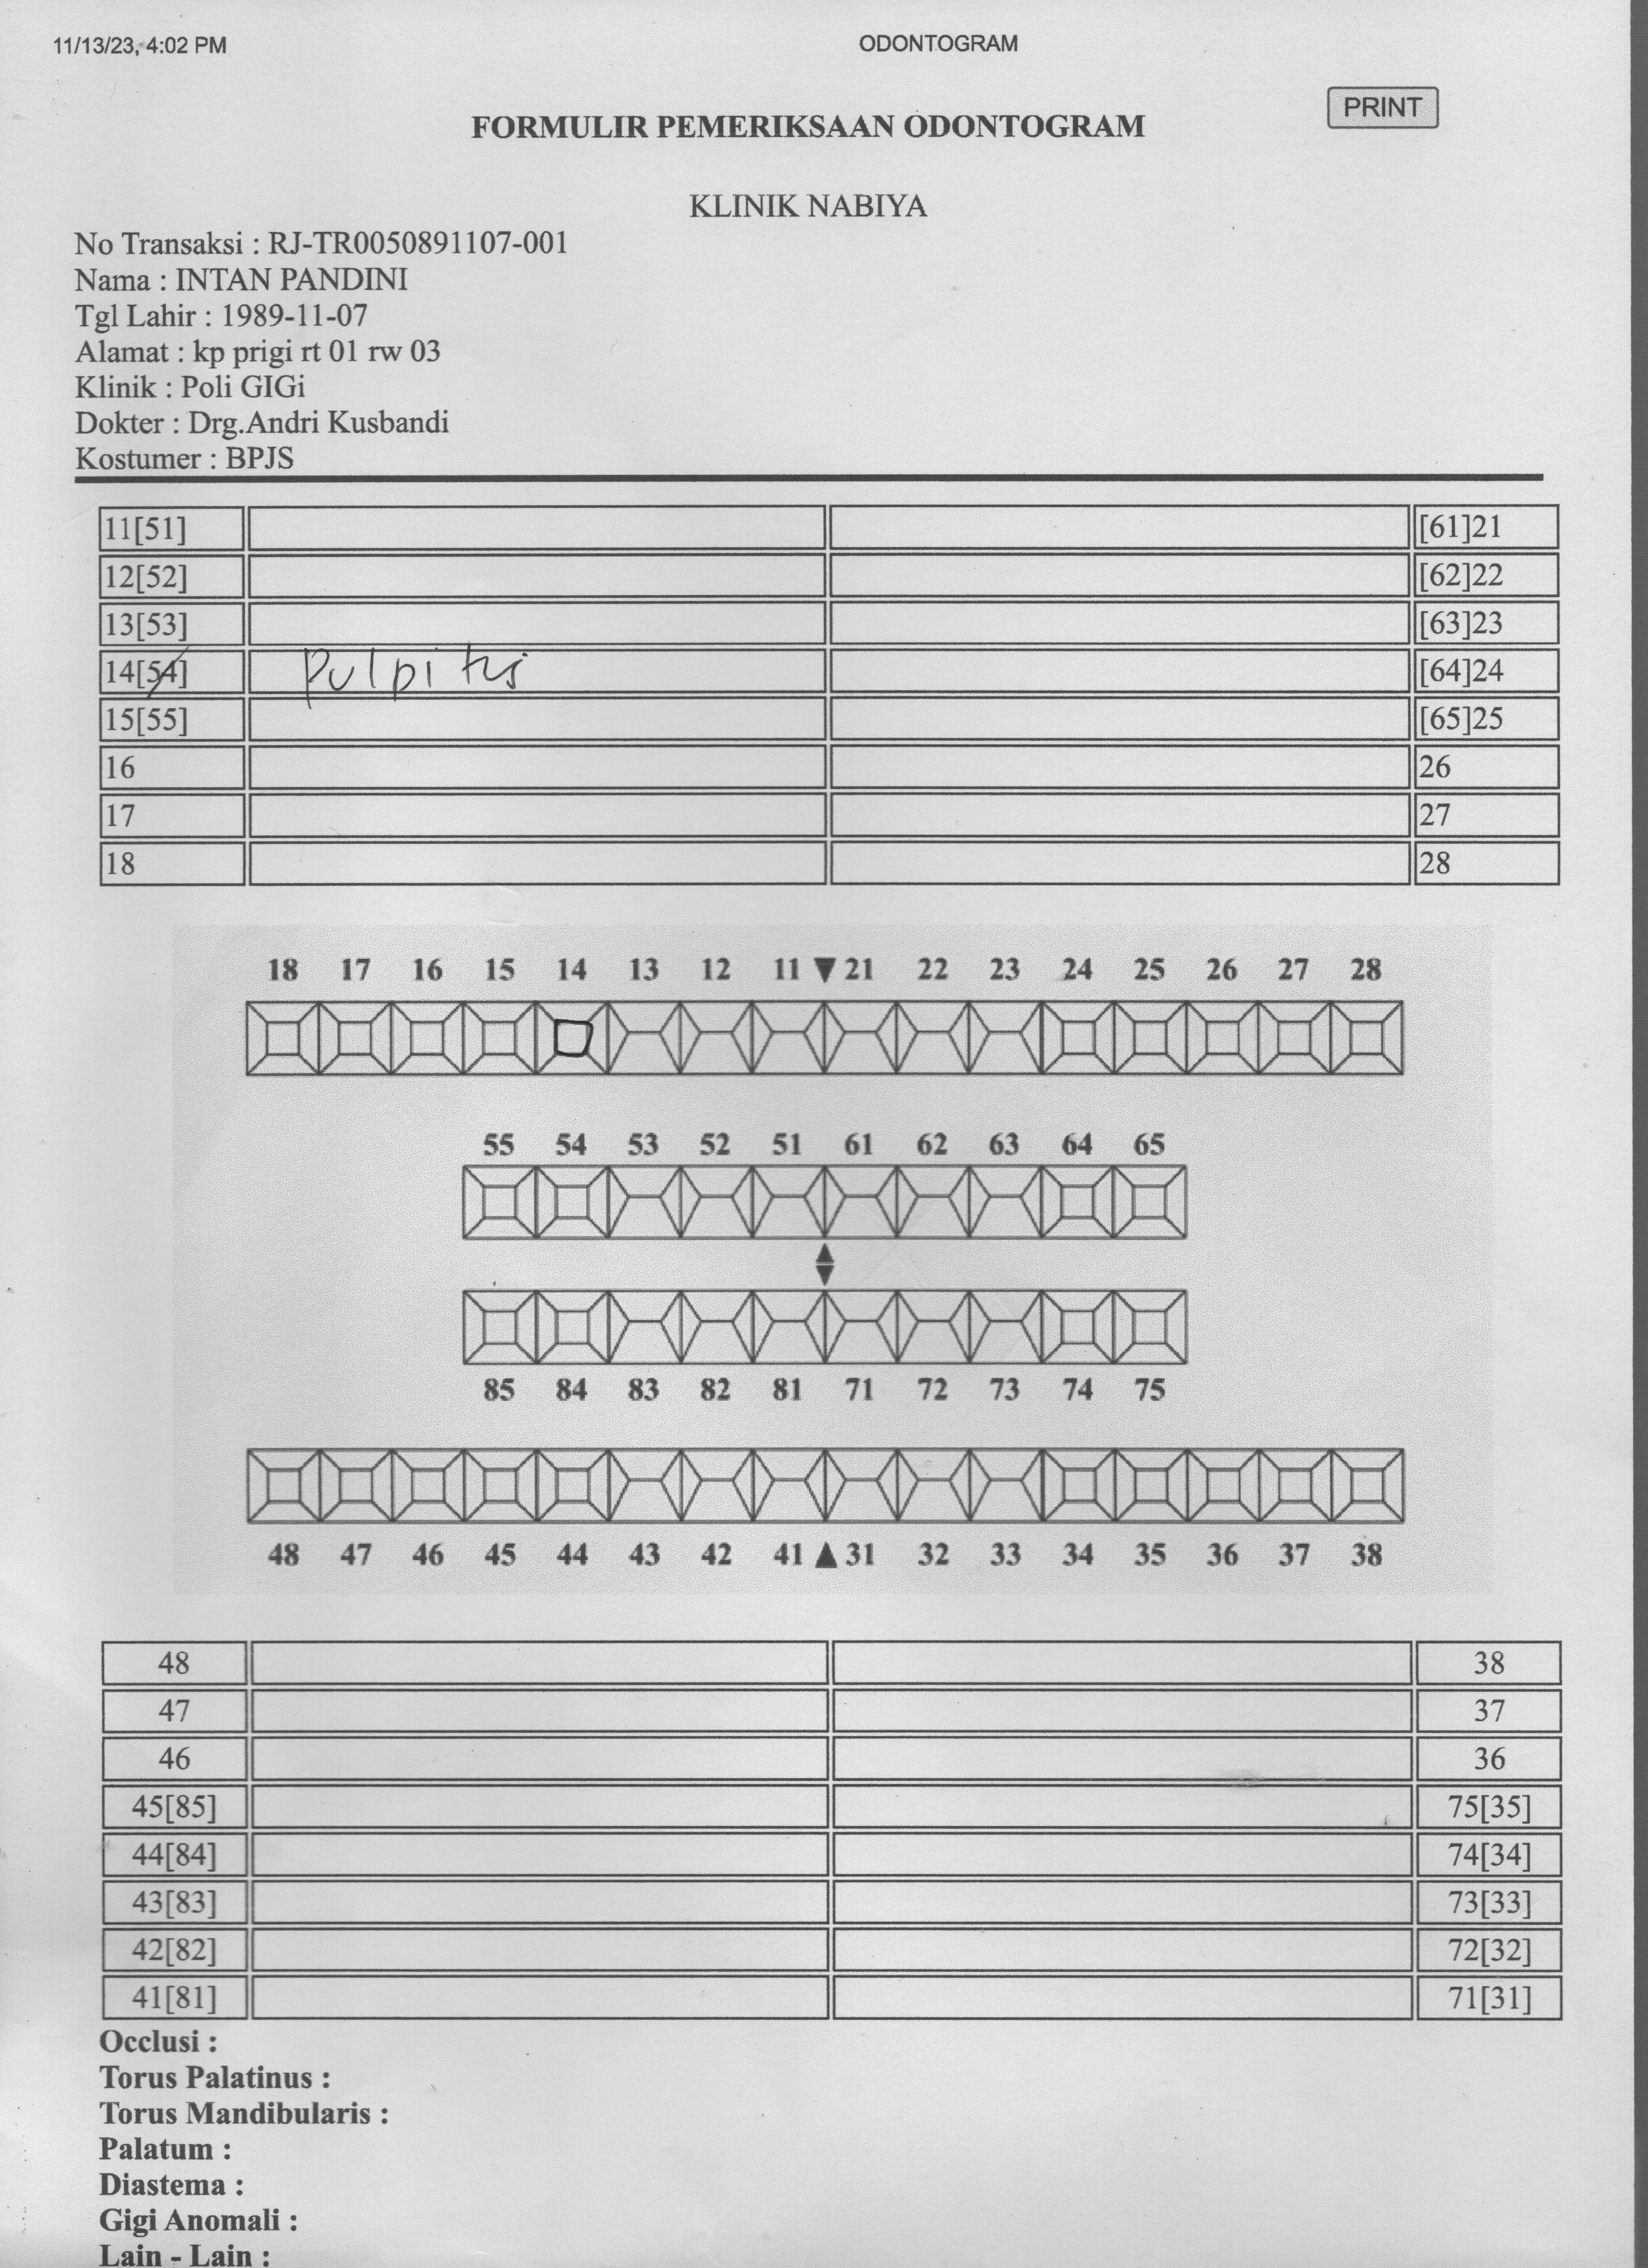 11/13/23, 4:02 PM ODONTOGRAM
PRINT
FORMULIR PEMERIKSAAN ODONTOGRAM
KLINIK NABIYA
No Transaksi : RJ-TR0050891107-001
Nama : INTAN PANDINI
Tgl Lahir : 1989-11-07
Alamat : kp prigi rt 01 rw 03
Klinik : Poli GIGi
Dokter : Drg.Andri Kusbandi
Kostumer : BPJS
11[51] [61]21
12[52] [62]22
13[53] [63]23
14[54] Pulpitis [64]24
15[55] [65]25
16 26
17 27
18 28
18 17 16 15 14 13 12 11 21 22 23 24 25 26 27 28
55 54 53 52 51 61 62 63 64 65
85 84 83 82 81 71 72 73 74 75
48 47 46 45 44 43 42 41 31 32 33 34 35 36 37 38
48 38
47 37
46 36
45[85] 75[35]
44[84] 74[34]
43[83] 73[33]
42[82] 72[32]
41[81] 71[31]
Occlusi :
Torus Palatinus :
Torus Mandibularis :
Palatum :
Diastema :
Gigi Anomali :
Lain - Lain :